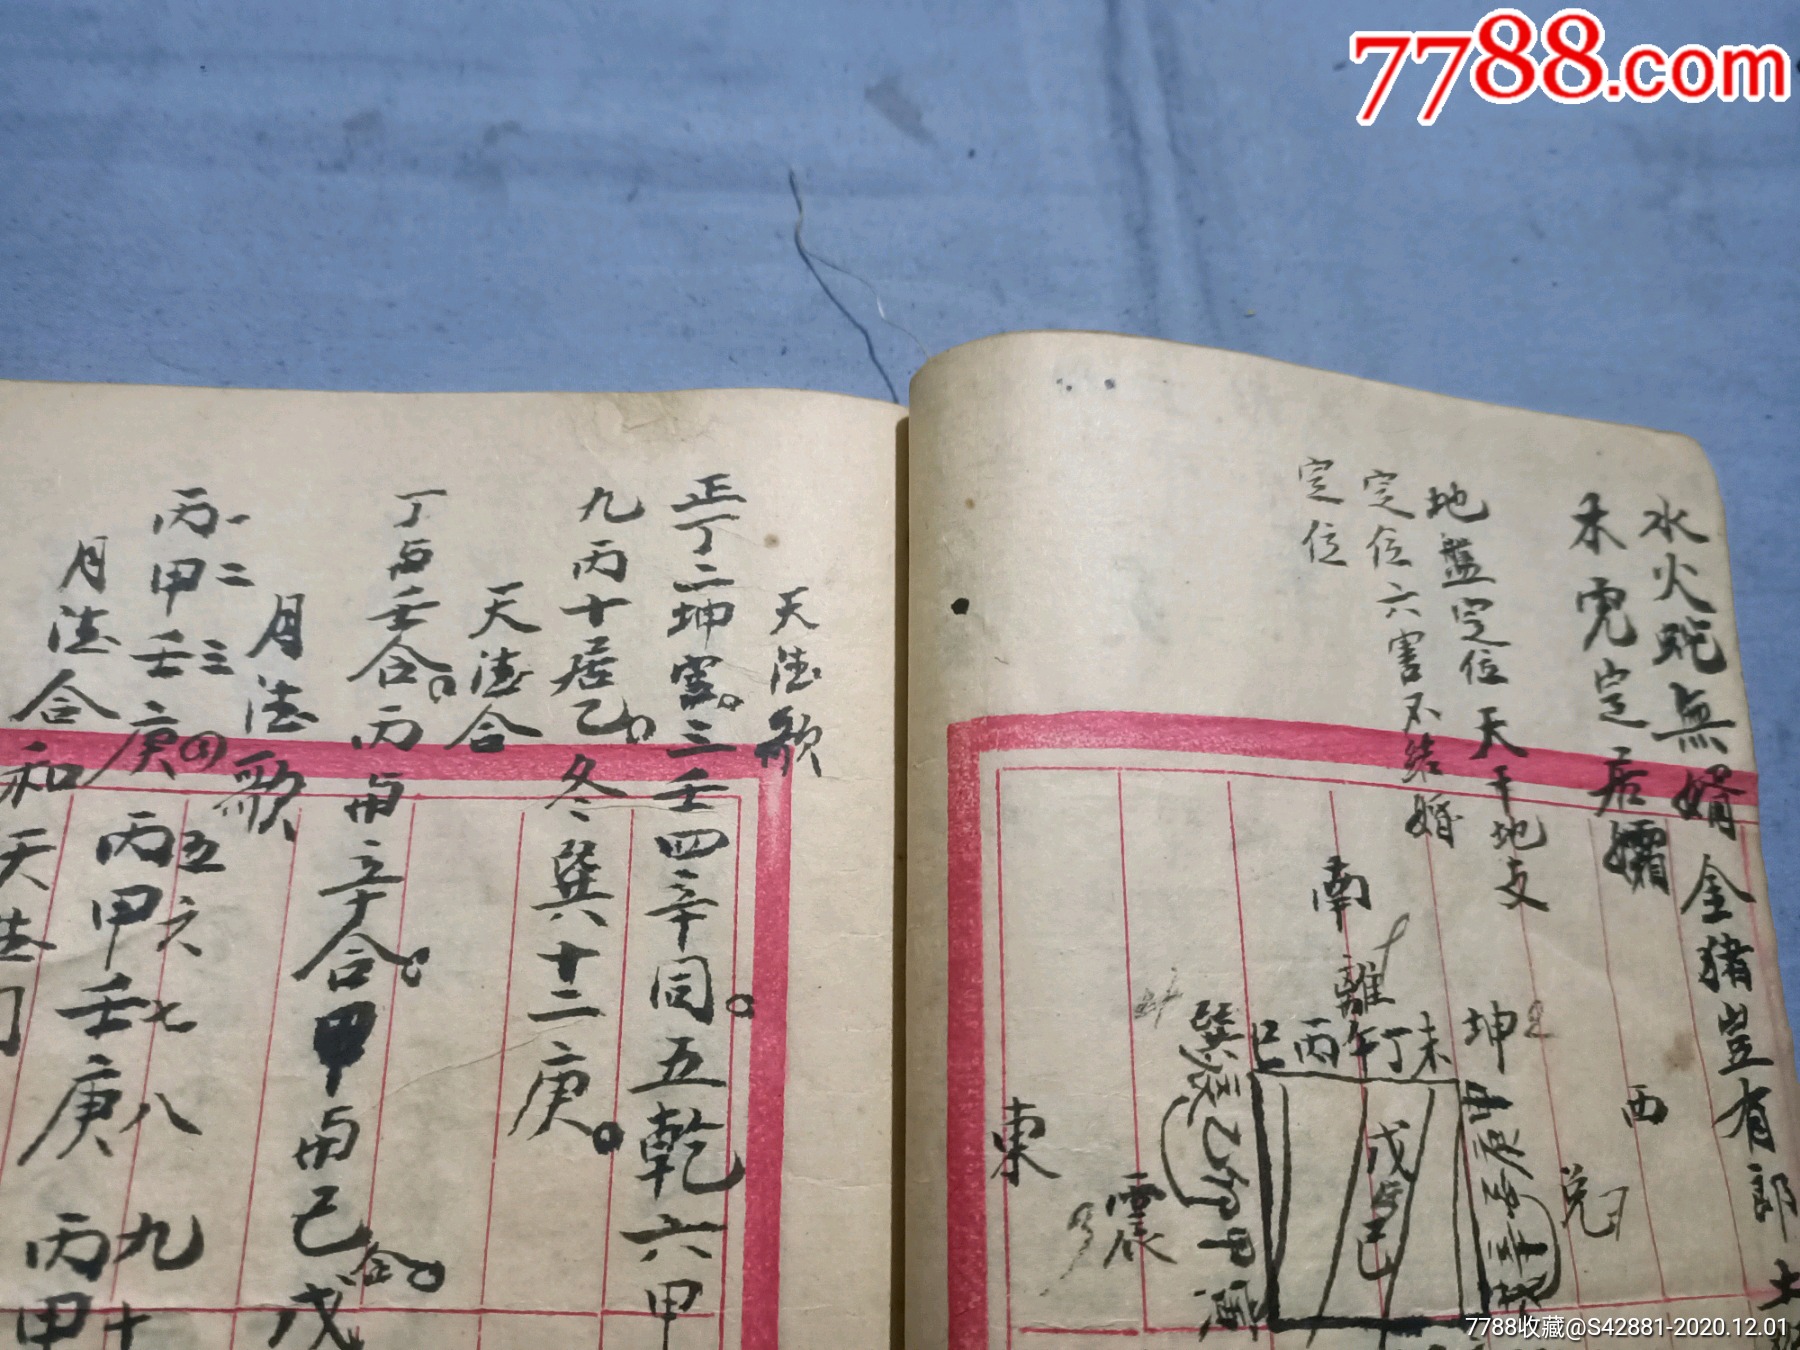 7788.com
水火蛇無婿金猪豈有郎土
木虎定居孀
地盤定位天干地支
定位六害不結婚
定位
南
離
巽辰乙卯甲寅
巳丙午丁未
坤2
戊己
東
震
3
西
兑7
天法歌
正丁二坤宫三壬四辛同五乾六甲
九丙十居乙冬巽十二庚
天法合
丁与壬合丙与辛合甲与己合戊
月法歌
一二三④五六七八九十
丙甲壬庚丙甲壬庚丙甲
月法合和天法
7788收藏@S42881-2020.12.01